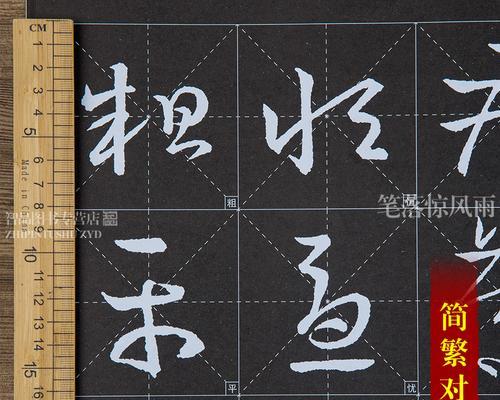 CM
1
2
3
4
5
6
7
8
9
10
11
12
13
14
15
16
Made in China
粗
粗
平
平
忧
忧
智品图书专营店
ZHIPINTUSHU ZYD
笔落惊风雨
简繁对